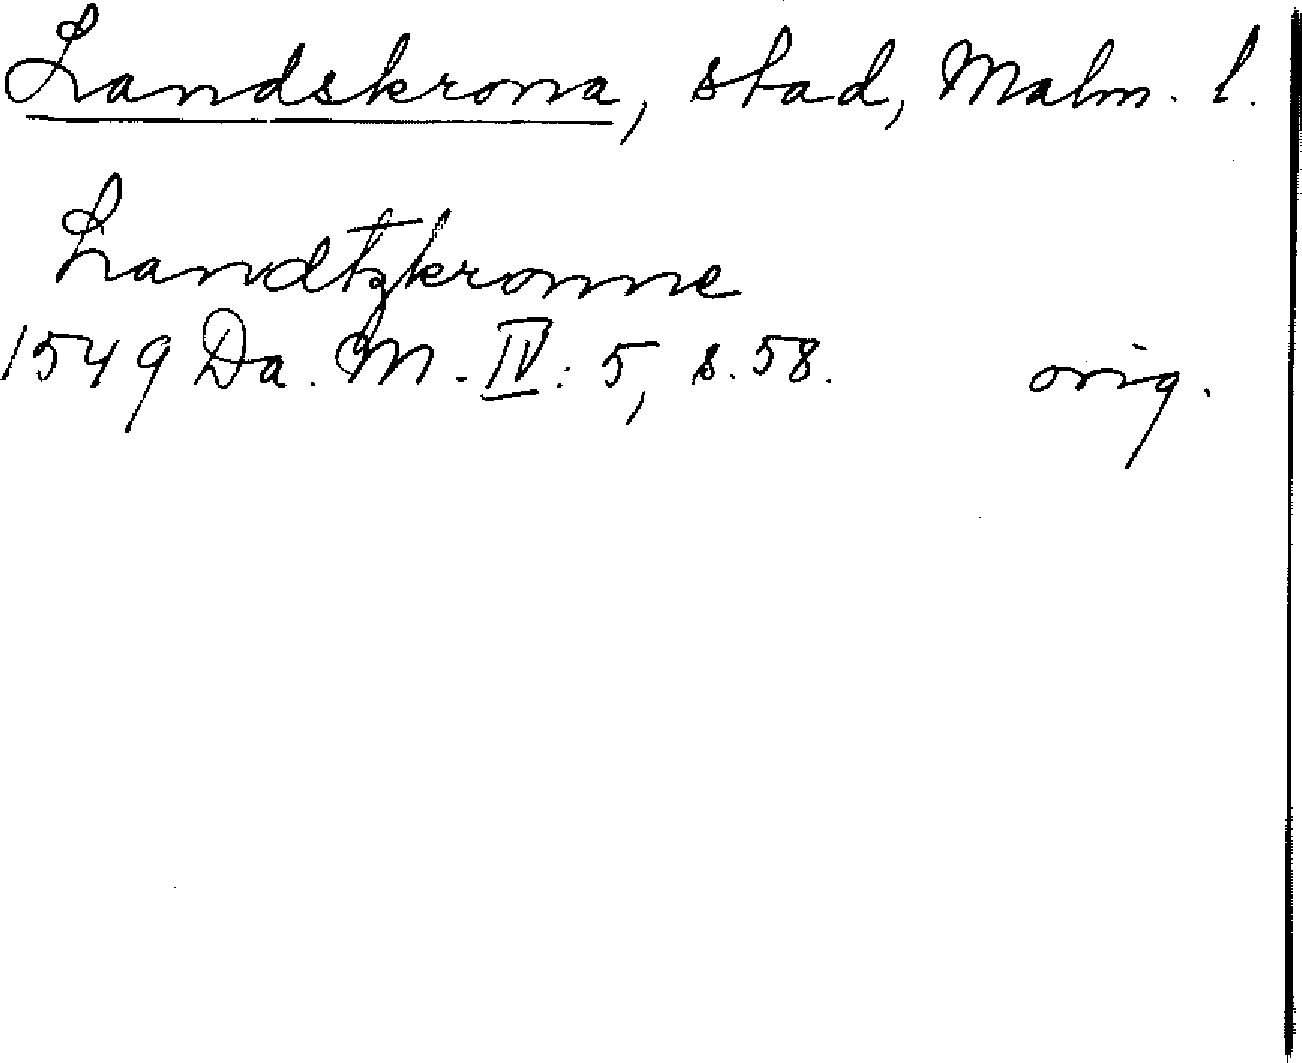 Landskrona, stad, Malm. l.
Landtzkronne
1549 Da. M. IV: 5, s. 58. orig.